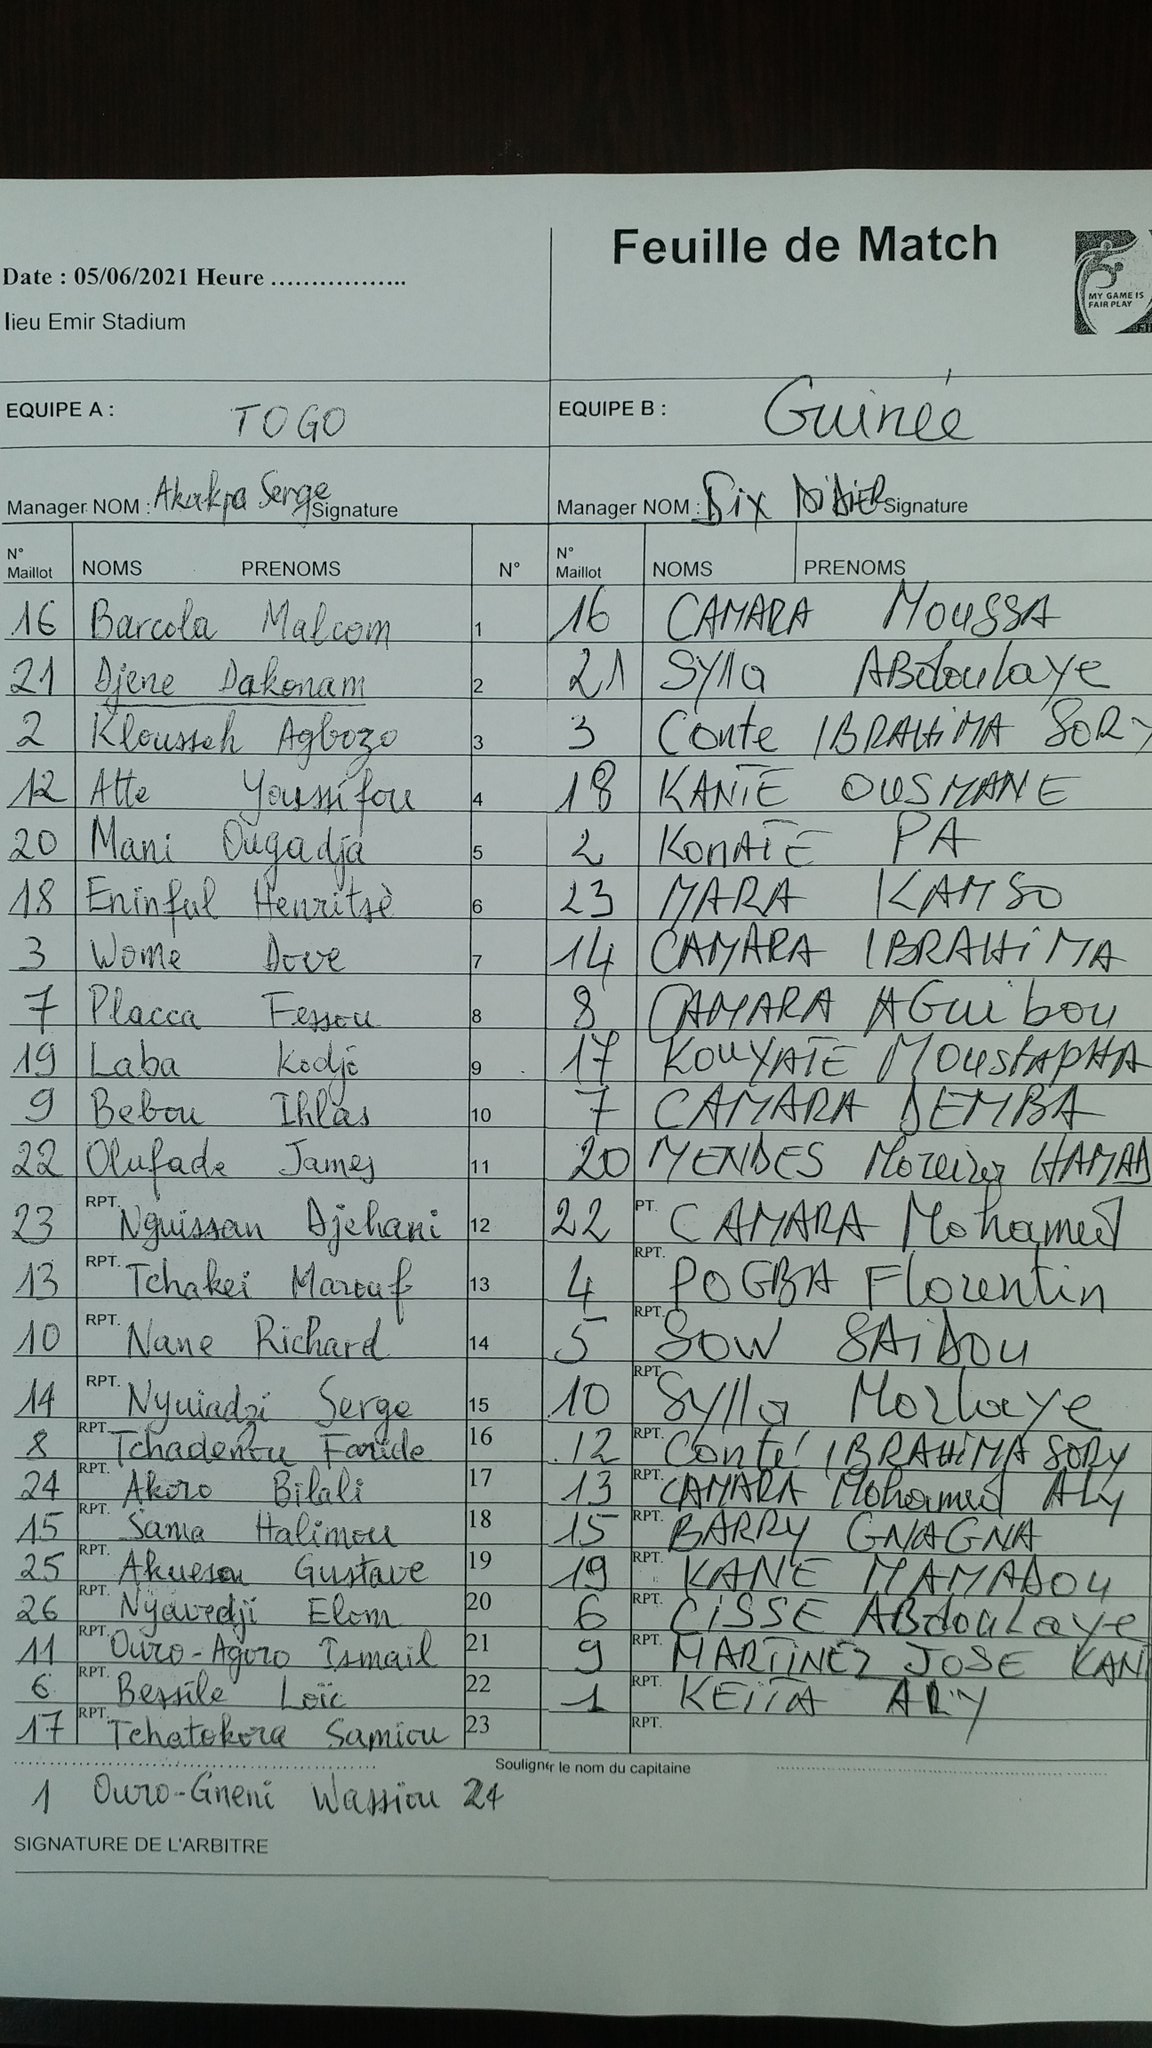 Feuille de Match
Date : 05/06/2021 Heure ……………..
lieu Emir Stadium
MY GAME IS
FAIR PLAY
EQUIPE A : TOGO EQUIPE B : Guinée
Manager NOM : Akakpa Serge Signature Manager NOM : Six DIDIER Signature
N° Maillot NOMS PRENOMS N° N° Maillot NOMS PRENOMS
16 Barcola Malcom 1 16 CAMARA MOUSSA
21 Djene Dakonam 2 21 Sylla ABdoulaye
2 Klousseh Agbozo 3 3 Conte IBRAHiMA SORY
12 Atte Youssifou 4 18 KANTE OUSMANE
20 Mani Ougadja 5 2 KONATE PA
18 Eninful Henritsè 6 23 MARA KAMSO
3 Wome Dove 7 14 CAMARA IBRAHiMA
7 Placca Fessou 8 8 CAMARA AGuibou
19 Laba Kodjo 9 17 KOUYATE MOUStAPHA
9 Bebou Ihlas 10 7 CAMARA DEMBA
22 Olufade James 11 20 MENDES Moreira HAMAD
23 RPT. Nguissan Djehani 12 22 PT. CAMARA Mohamed
13 RPT. Tchakei Marouf 13 4 RPT. POGBA Florentin
10 RPT. Nane Richard 14 5 RPT. SOW SAiDOU
14 RPT. Nyuiadzi Serge 15 10 RPT. Sylla Morlaye
8 RPT. Tchadenou Faride 16 12 RPT. Conté IBRAHiMA SORY
24 RPT. Akoro Bilali 17 13 RPT. CAMARA Mohamed ALy
15 RPT. Sama Halimou 18 15 RPT. BARRY GNAGNA
25 RPT. Akueson Gustave 19 19 RPT. KANE MAMADOU
26 RPT. Nyavedji Elom 20 6 RPT. CISSE ABdouLaye
11 RPT. Ouro-Agoro Ismail 21 9 RPT. MARTINEZ JOSE KAN
6 RPT. Bessile Loïc 22 1 RPT. KEITA ALY
17 RPT. Tchatokora Samiou 23 RPT.
Souligner le nom du capitaine
1 Ouro-Gneni Wassiou 24
SIGNATURE DE L'ARBITRE